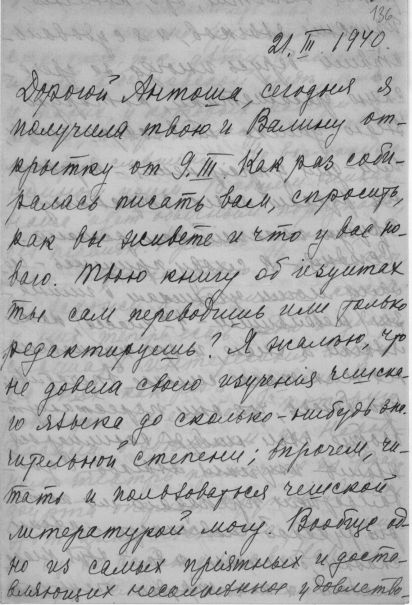 136
21. III 1940.
Дорогой Антоша, сегодня я
получила твою и Валину от-
крытку от 9. III Как раз соби-
ралась писать вам, спросить,
как вы живете и что у вас но-
вого. Твою книгу об іезуитах
ты сам переводишь или только
редактируешь? Я жалѣю, что
не довела своего изученія чешска-
го языка до сколько-нибудь зна-
чительной степени; впрочем, чи-
тать и пользоваться чешской
литературой могу. Вообще од-
но из самых пріятных и доста-
вляющих несомненное удовлетво-